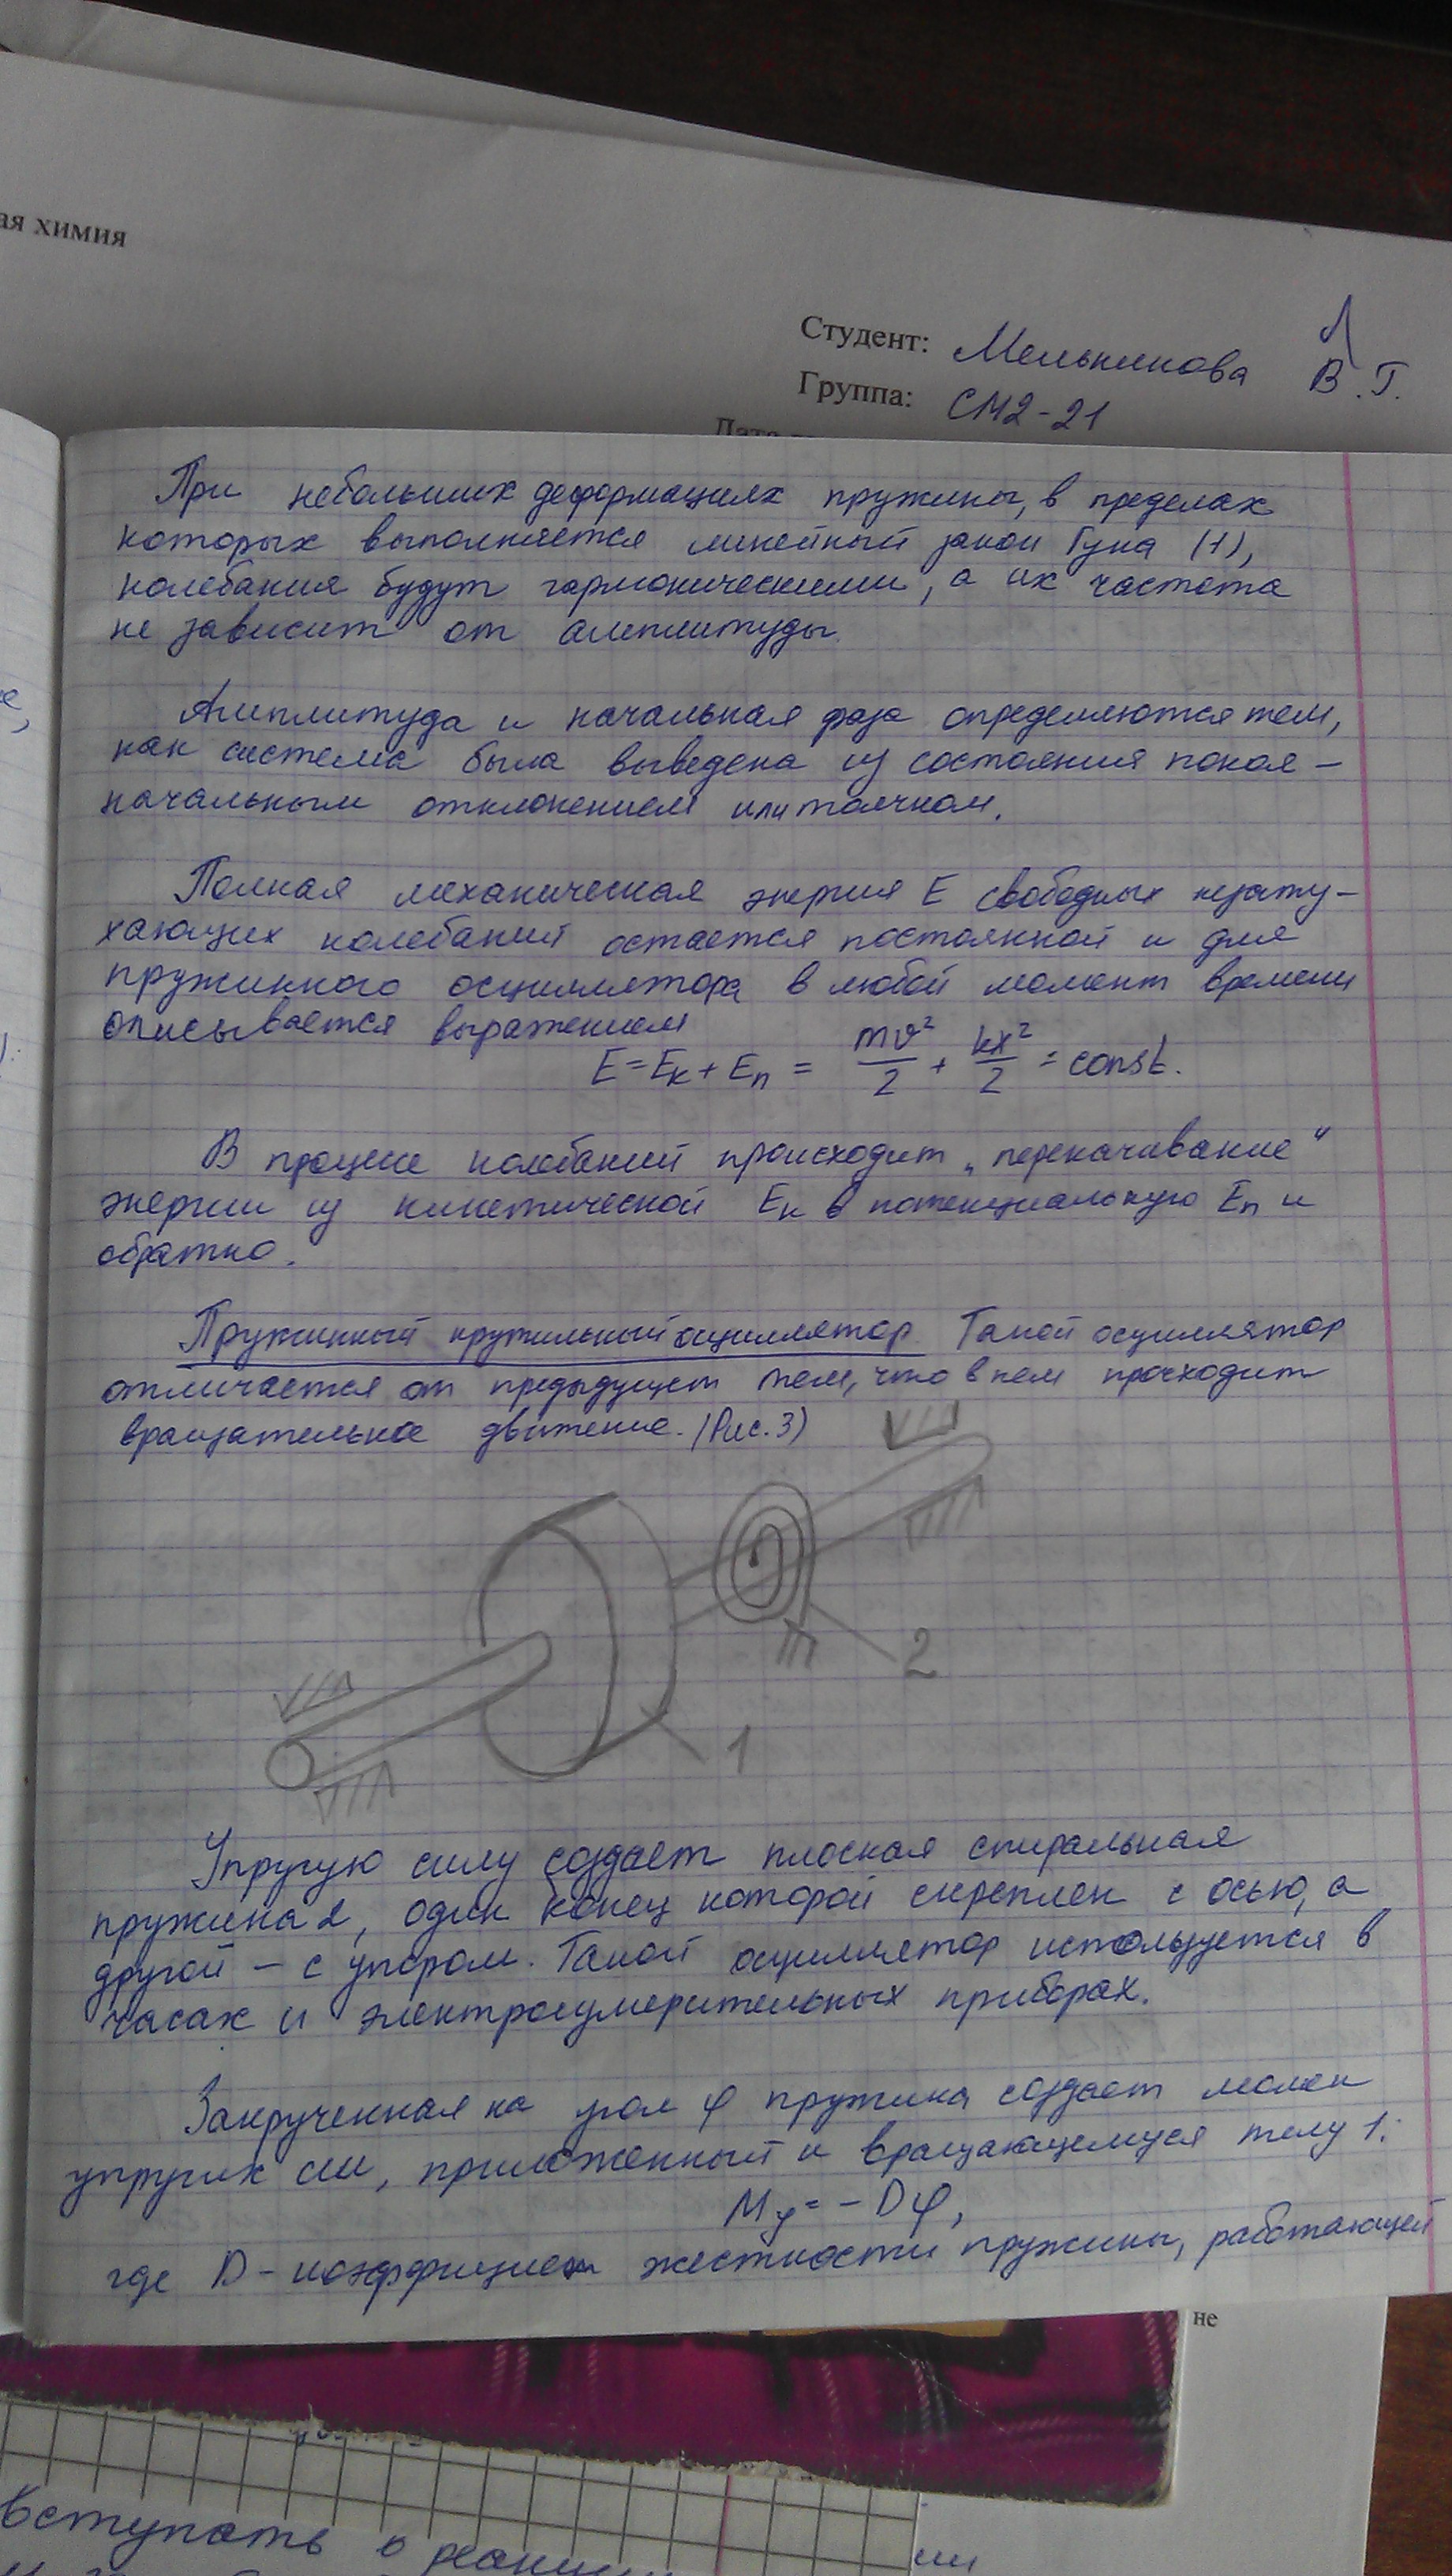 ая химия
Студент: Мельникова В.Г.
Группа: СМ2-21
При небольших деформациях пружины, в пределах
которых выполняется линейный закон Гука (1),
колебания будут гармоническими, а их частота
не зависит от амплитуды.
Амплитуда и начальная фаза определяются тем,
как система была выведена из состояния покоя –
начальным отклонением или толчком.
Полная механическая энергия E свободных незату-
хающих колебаний остается постоянной и для
пружинного осциллятора в любой момент времени
описывается выражением
E = Eк + Eп = mv²/2 + kx²/2 = const.
В процессе колебаний происходит „перекачивание"
энергии из кинетической Eк в потенциальную Eп и
обратно.
Пружинный крутильный осциллятор. Такой осциллятор
отличается от предыдущего тем, что в нем происходит
вращательное движение. (Рис. 3)
2
1
Упругую силу создает плоская спиральная
пружина 2, один конец которой скреплен с осью, а
другой – с упором. Такой осциллятор используется в
часах и электроизмерительных приборах.
Закрученная на угол φ пружина создает момен
упругих сил, приложенный к вращающемуся телу 1:
Mу = – Dφ,
где D – коэффициент жесткости пружины, работающей
не
вступать в реакции